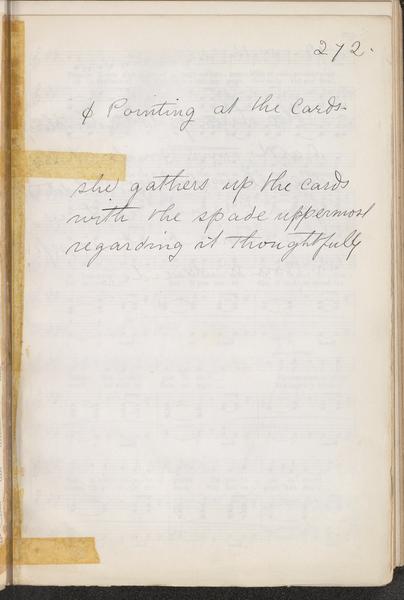 272.
ϕ Pointing at the Cards.
she gathers up the cards
with the spade uppermost
regarding it thoughtfully